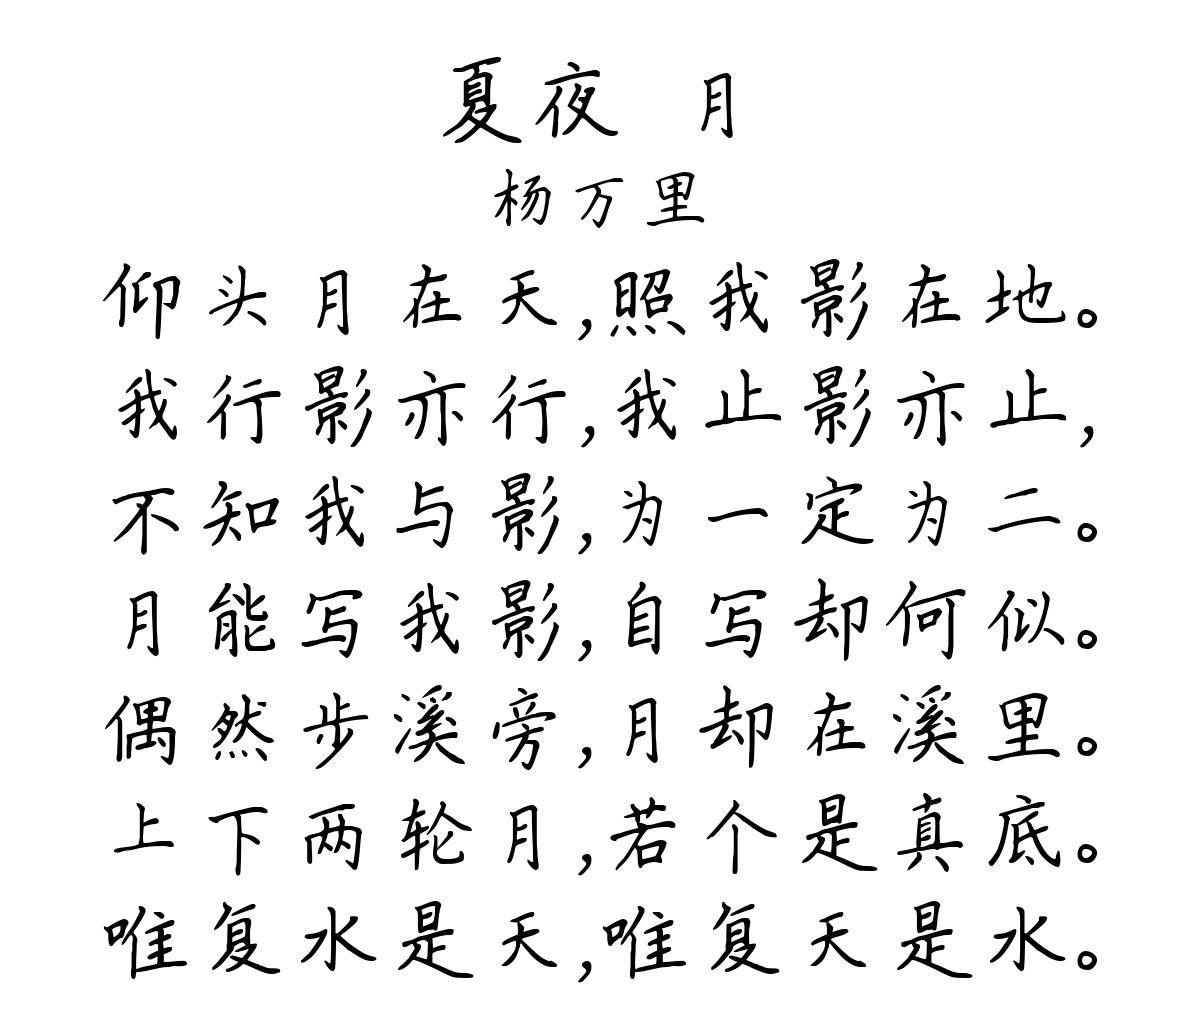 夏夜 月
杨万里
仰头月在天,照我影在地。
我行影亦行,我止影亦止,
不知我与影,为一定为二。
月能写我影,自写却何似。
偶然步溪旁,月却在溪里。
上下两轮月,若个是真底。
唯复水是天,唯复天是水。